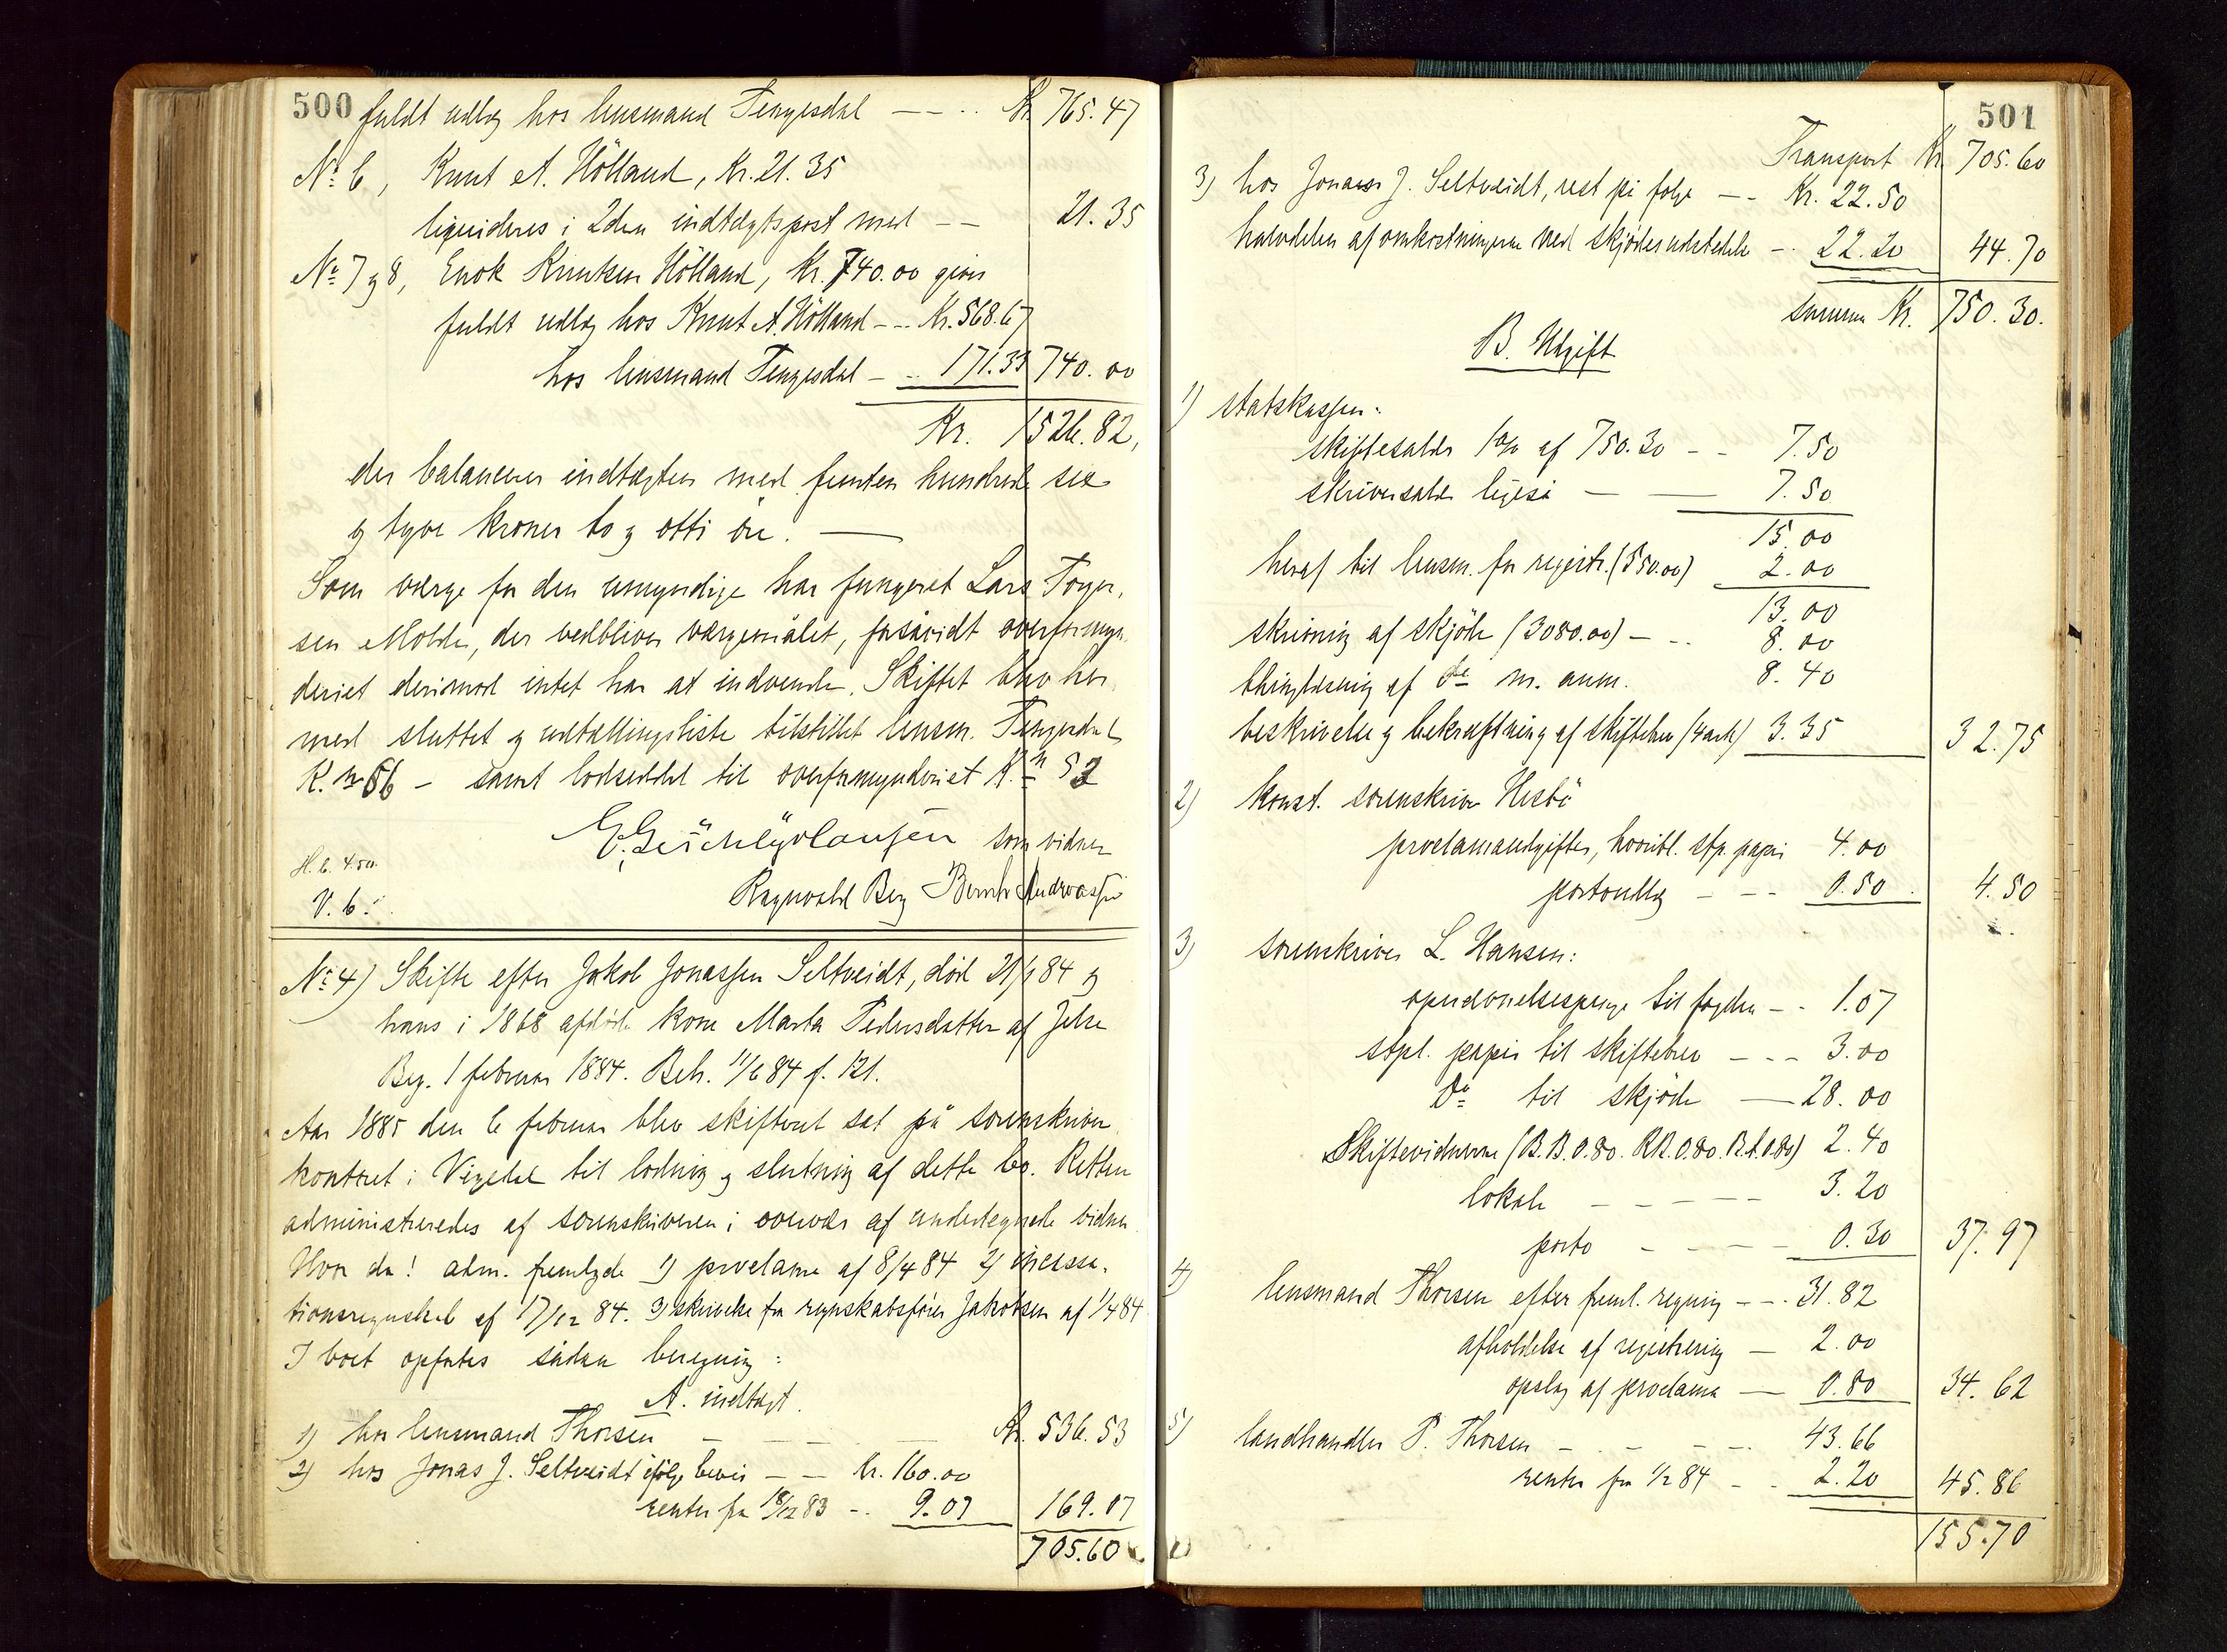 500 fuldt udlæg hos lensmand Tengesdal — — · · Kr. 765.47
No 6, Knut A. Hölland, Kr. 21.35
liquideres i 2den indtægtspost med — — 21.35
No 7 og 8, Enok Knutsen Hölland, Kr. 740.00 gives
fuldt udlæg hos Knut A. Hölland — — Kr. 568.67
hos lensmand Tengesdal — · · 171.33 740.00
Kr. 1526.82,
der balancerer indtægten med femten hundrede sex
og tyve kroner to og otti öre. —
Som værge for den umyndige har fungeret Lars Torger-
sen Molde, der vedbliver værgemålet, forsåvidt overformyn-
deriet derimod intet har at indvende. Skiftet blev her
med sluttet og udtællingsliste tilstillet lensm. Tengesdal
K. No 56 — samt lodseddel til overformynderiet K. No 52
som vidner
H. b. 4.50.
Ragnvald Berg Bernh. Andreassen
V. b.
No 4) Skifte efter Jakob Jonassen Seltveidt, död 21/1 84 og
hans i 1868 afdöde kone Marta Pedersdatter af Jelse
Beg. 1 februar 1884. Beh. 11/6 84 f. 121.
Aar 1885 den 6 februar blev skifteret sat på sorenskriver
kontoret i Vigedal til lodning og slutning af dette bo. Retten
administreredes af sorenskriveren i overvær af undertegnede vidner
Hvor da! adm. fremlagde 1) proclama af 8/4 84 2) incassa-
tionsregnskab af 17/12 84. 3) skrivelse fra regnskabsförer Jakobsen af 1/4 84
I boet opförtes sådan beregning:
A. indtægt.
1) hos lensmand Thorsen — — — — Kr. 536.53
2) hos Jonas J. Seltveidt ifölge bevis — — Kr. 160.00
renter fra 18/12 83 — · 9.07 169.07
705.60
501
Transport Kr. 705.60
3) hos Jonas J. Seltveidt, rest på følge — — Kr. 22.50
halvdelen af omkostningerne ved skjödes udstedelse — · 22.20 44.70
summa Kr. 750.30.
B. Udgift
1) statskassen:
skiftesalær 1% af 750.30 — — 7.50
skriversalær ligeså — — 7.50
15.00
heraf til lensm. for registr. (550.00) 2.00
13.00
skrivning af skjöde (3080.00) — — · 8.00
thinglæsning af do m. anm. 8.40
beskrivelse og bekræftning af skiftebrev (4 ark) 3.35 32.75
2) konst. sorenskriver Hesbö
proclamaudgifter, hvoribl. stp. papir 4.00
portoudlæg — — — 0.50 4.50
3) sorenskriver L. Hansen:
opudvnelsespenge til fogden — · 1.07
stpl. papir til skiftebrev — — — 3.00
Do til skjöde — 28.00
Skiftevidnerne (B.B. 0.80. R.B. 0.80. B.A. 0.80) 2.40
lokale — — — — — 3.20
porto — — — — 0.30 37.97
4) lensmand Thorsen efter freml. regning — — · 31.82
afholdelse af registrering — 2.00
opslag af proclama — 0.80 34.62
5) landhandler P. Thorsen — · — — — · 43.66
renter fra 1/2 84 — · 2.20 45.86
155.70